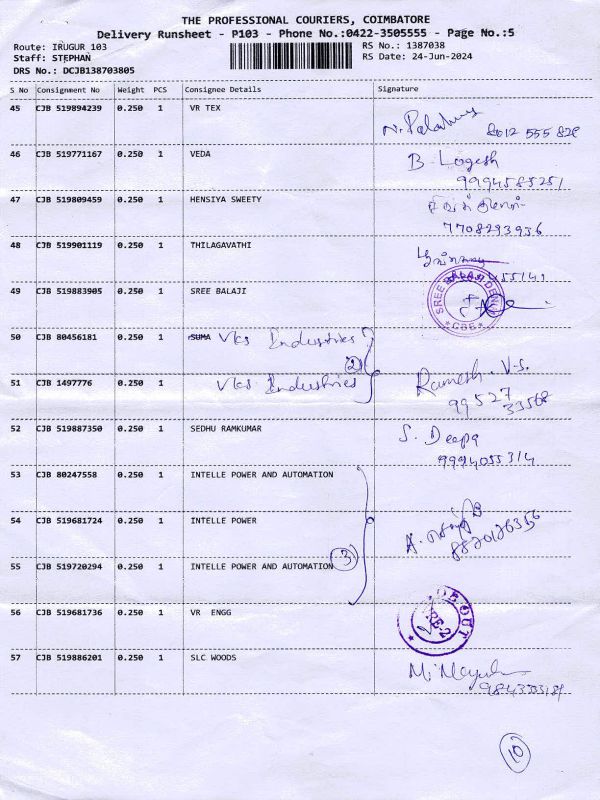 THE PROFESSIONAL COURIERS, COIMBATORE
Delivery Runsheet - P103 - Phone No.:0422-3505555 - Page No.:5
Route: IRUGUR 103 RS No.: 1387038
Staff: STEPHAN RS Date: 24-Jun-2024
DRS No.: DCJB138703805
S No Consignment No Weight PCS Consignee Details Signature
45 CJB 519894239 0.250 1 VR TEX
46 CJB 519771167 0.250 1 VEDA B. Logesh
9994585251
47 CJB 519809459 0.250 1 HENSIYA SWEETY
7708293936
48 CJB 519901119 0.250 1 THILAGAVATHI
49 CJB 519883905 0.250 1 SREE BALAJI SREE BALAJI CBE
50 CJB 80456181 0.250 1 SUMA Vks Industries
2
51 CJB 1497776 0.250 1 Vks Industries Ramesh. V.S.
99527
33568
52 CJB 519887350 0.250 1 SEDHU RAMKUMAR S. Deepa
9994055314
53 CJB 80247558 0.250 1 INTELLE POWER AND AUTOMATION
54 CJB 519681724 0.250 1 INTELLE POWER A.
55 CJB 519720294 0.250 1 INTELLE POWER AND AUTOMATION 3
56 CJB 519681736 0.250 1 VR ENGG OUT
57 CJB 519886201 0.250 1 SLC WOODS
10